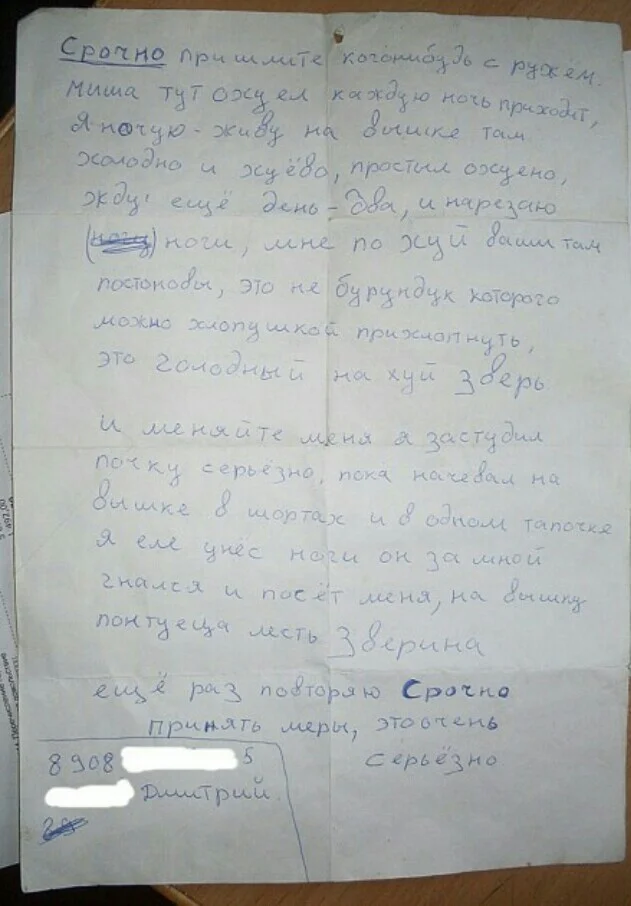 Срочно пришлите когонибудь с ружём.
Миша тут охуел каждую ночь приходит,
Я ночую - живу на вышке там
холодно и хуёво, простыл охуено,
жду ещё день - два, и нарезаю
ноги, мне по хуй ваши там
постоновы, это не бурундук которого
можно хлопушкой прихлопнуть,
это голодный на хуй зверь
И меняйте меня я застудил
почку серьёзно, пока начевал на
вышке в шортах и в одном тапочке
я еле унёс ноги он за мной
гнался и посёт меня, на вышку
понтуеща лесть Зверина
ещё раз повторяю Срочно
принять меры, это очень
серьёзно
8908 5
Дмитрий